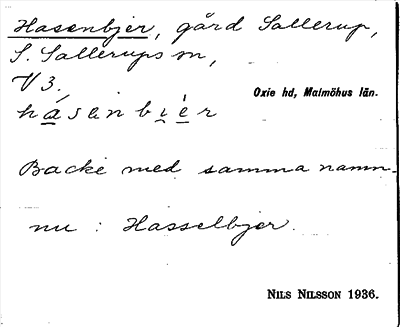 Hasenbjer, gård Sallerup,
S. Sallerups sn,
V 3.
Oxie hd, Malmöhus län.
hásenbi̯èr
Backe med samma namn.
nu : Hasselbjer.
NILS NILSSON 1936.